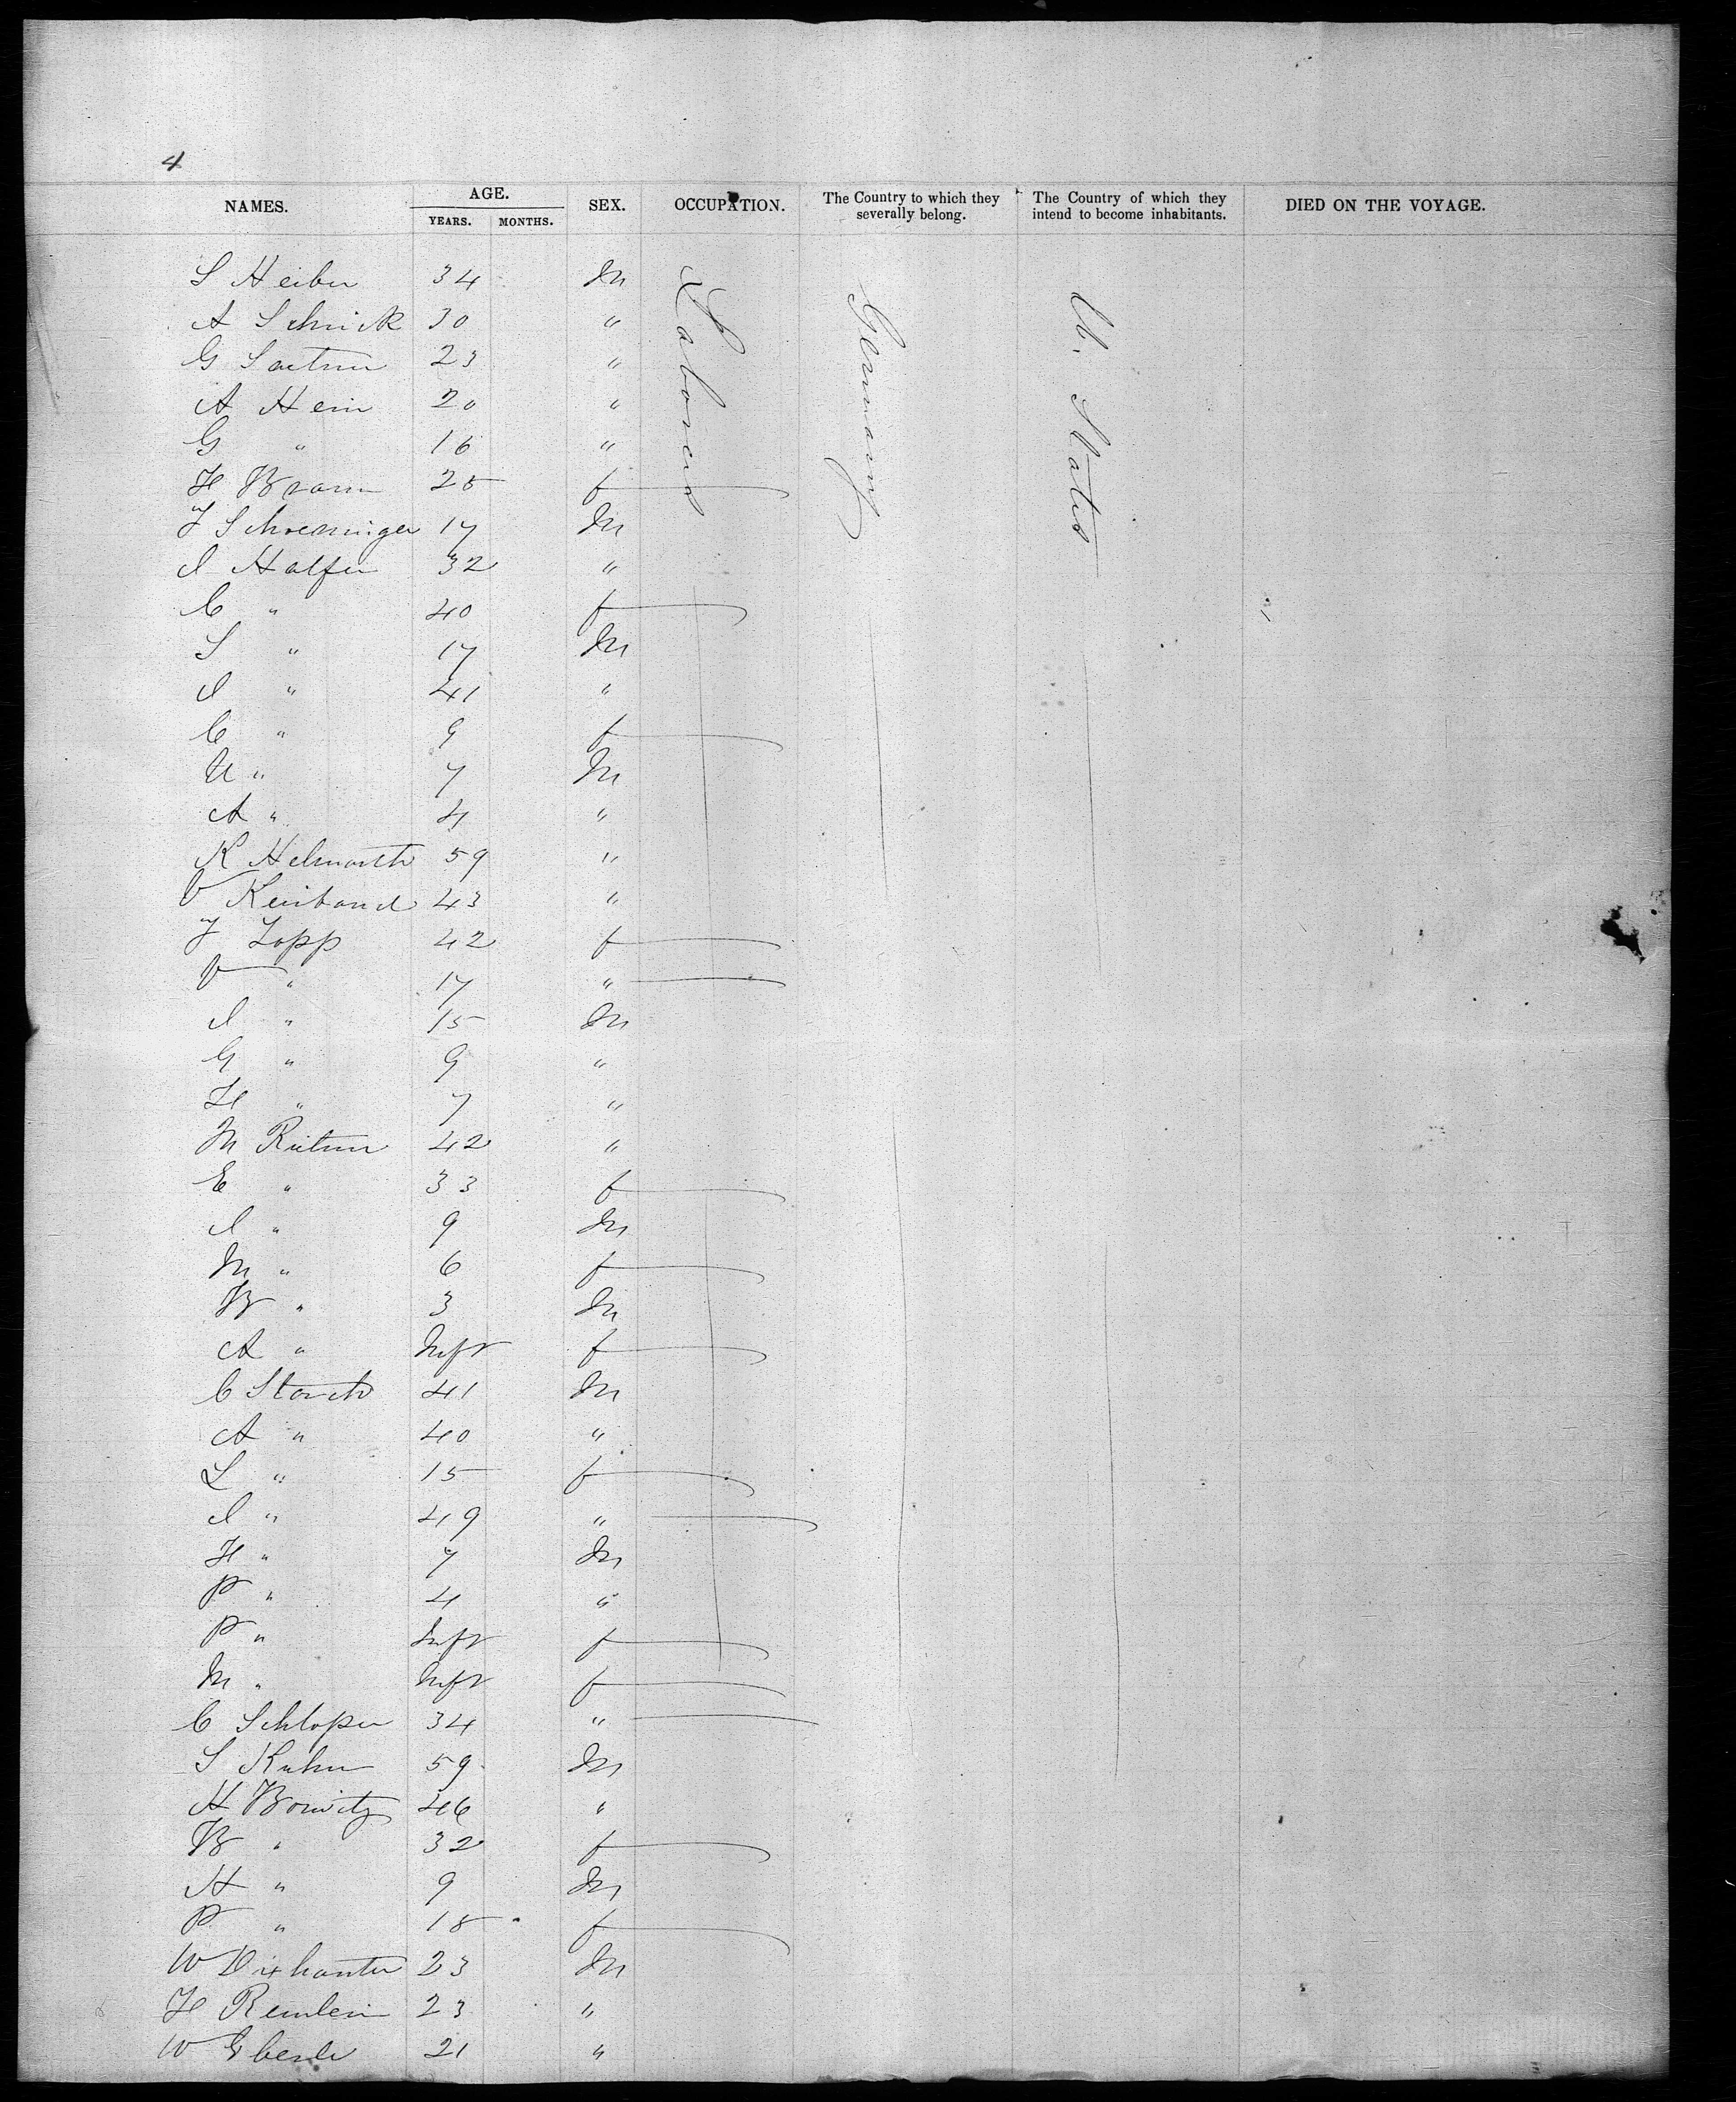 4
NAMES. AGE. YEARS. MONTHS. SEX. OCCUPATION. The Country to which they severally belong. The Country of which they intend to become inhabitants. DIED ON THE VOYAGE.
Laborers Germany U. States
S Heiber 34 M
A Schnick 30 "
G 23 "
A Hein 20 "
G " 16 "
H Braun 25 f
J Schroeninger 17 M
I Halfer 32 "
C " 40 f
S " 17 M
I " 41 "
C " 9 f
U " 7 M
A " 4 "
K Helmarth 59 "
V 43 "
J Zopp 42 f
V " 17 "
I " 15 M
G " 9 "
H " 7 "
M 42 "
E " 33 f
I " 9 M
M " 6 f
B " 3 M
A " Inft f
C Storch 41 M
A " 40 "
L " 15 f
I " 49 "
H " 7 M
P " 4 "
P " Inft f
M " Inft f
C Schloper 34 "
S Kuhn 59 M
H Borwitz 46 "
B " 32 f
H " 9 M
P " 18 f
W Dixhanter 23 M
H Remlein 23 "
W Eberle 21 "